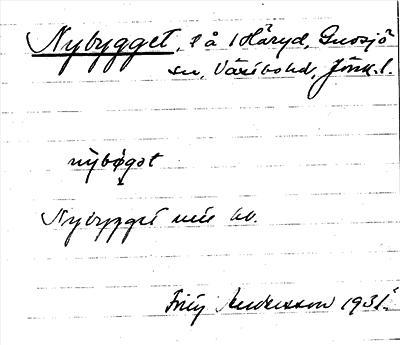 Nybygget, l å Håryd, Gnosjö
sn, Västbo hd, Jönk. l.
nybøgat
Nybygget
Andersson 1931.